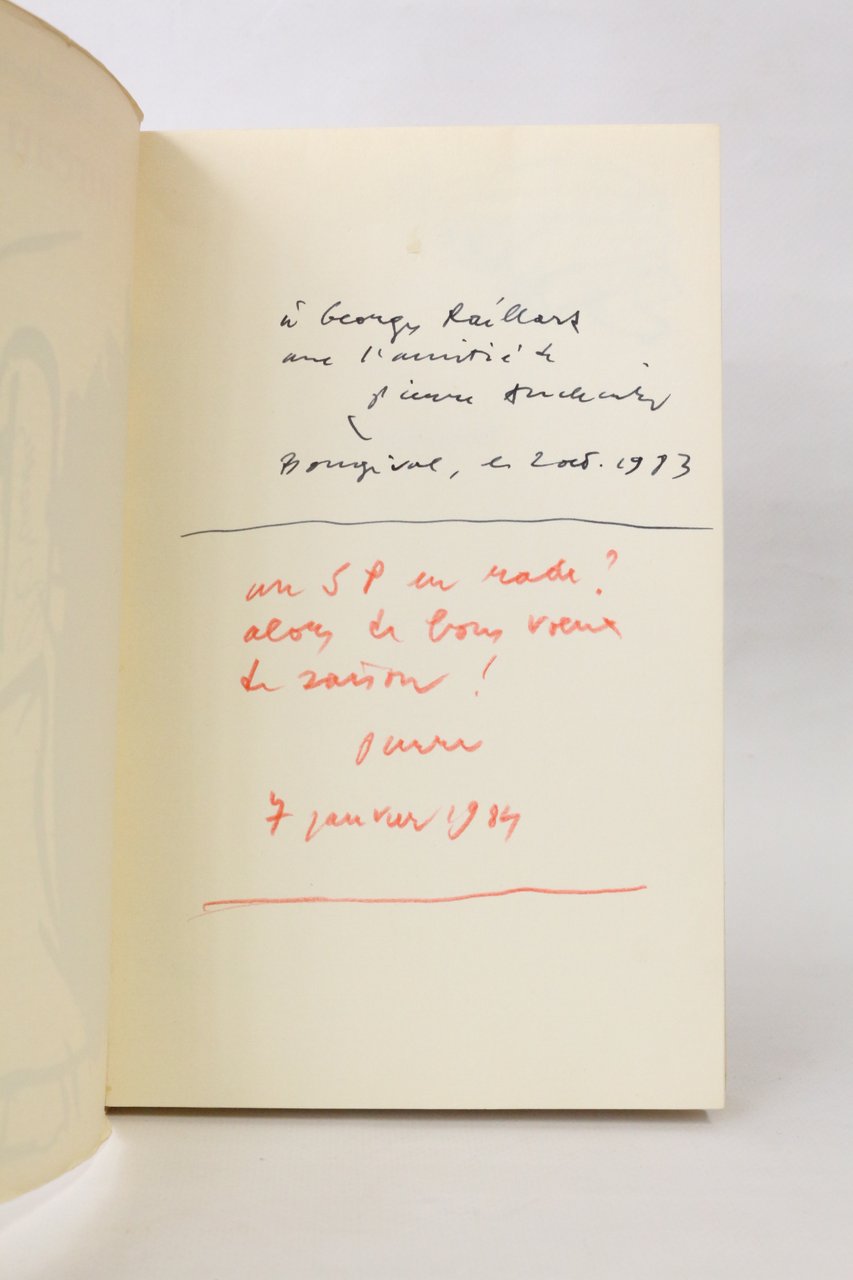 à Georges Raillard
avec l'amitié de
pierre Alechinsky
Bougival, le 2 oct. 1983
un SP en rade?
alors de bons voeux
de saison!
pierre
7 janvier 1984